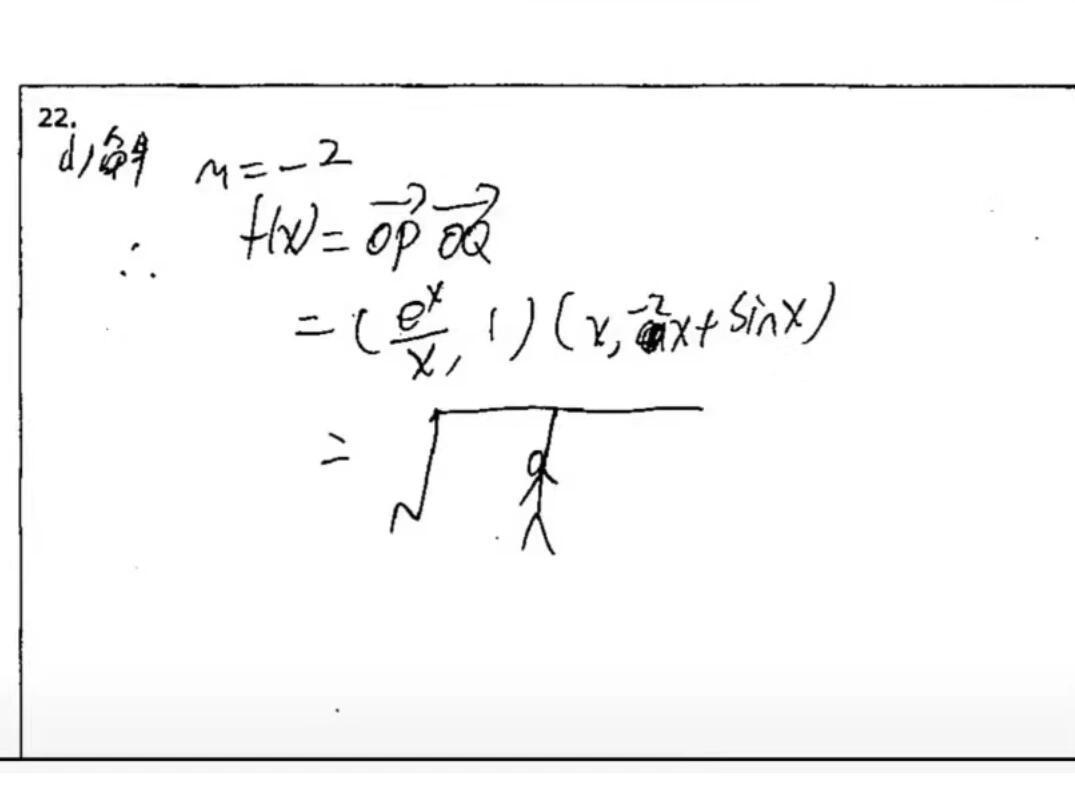 22.
(1) 解 m = -2
∴ f(x) = \overrightarrow{OP} \overrightarrow{OQ}
= (\frac{e^x}{x}, 1) (x, -2x + sinx)
= √